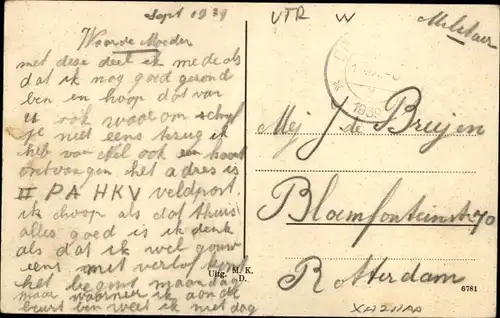 Sept 1939
UTR W
Militair
Waarde Moeder
met deze deel ik mede als
dat ik nog goed gezond
ben en hoop dat van
u ook waarom schrijf
je niet eens terug ik
heb van Nel ook een kaart
ontvangen het adres is
II PA HKV veldpost.
ik choop als dat thuis
alles goed is ik denk
als dat ik wel gouw
eens met verlof kom
het begint maandag
maar wanneer ik aan de
beurt ben weet ik niet dag
1939
Mej J de Bruijen
Bloemfonteinst 70
Rotterdam
Uitg. M. K.
D.
6781